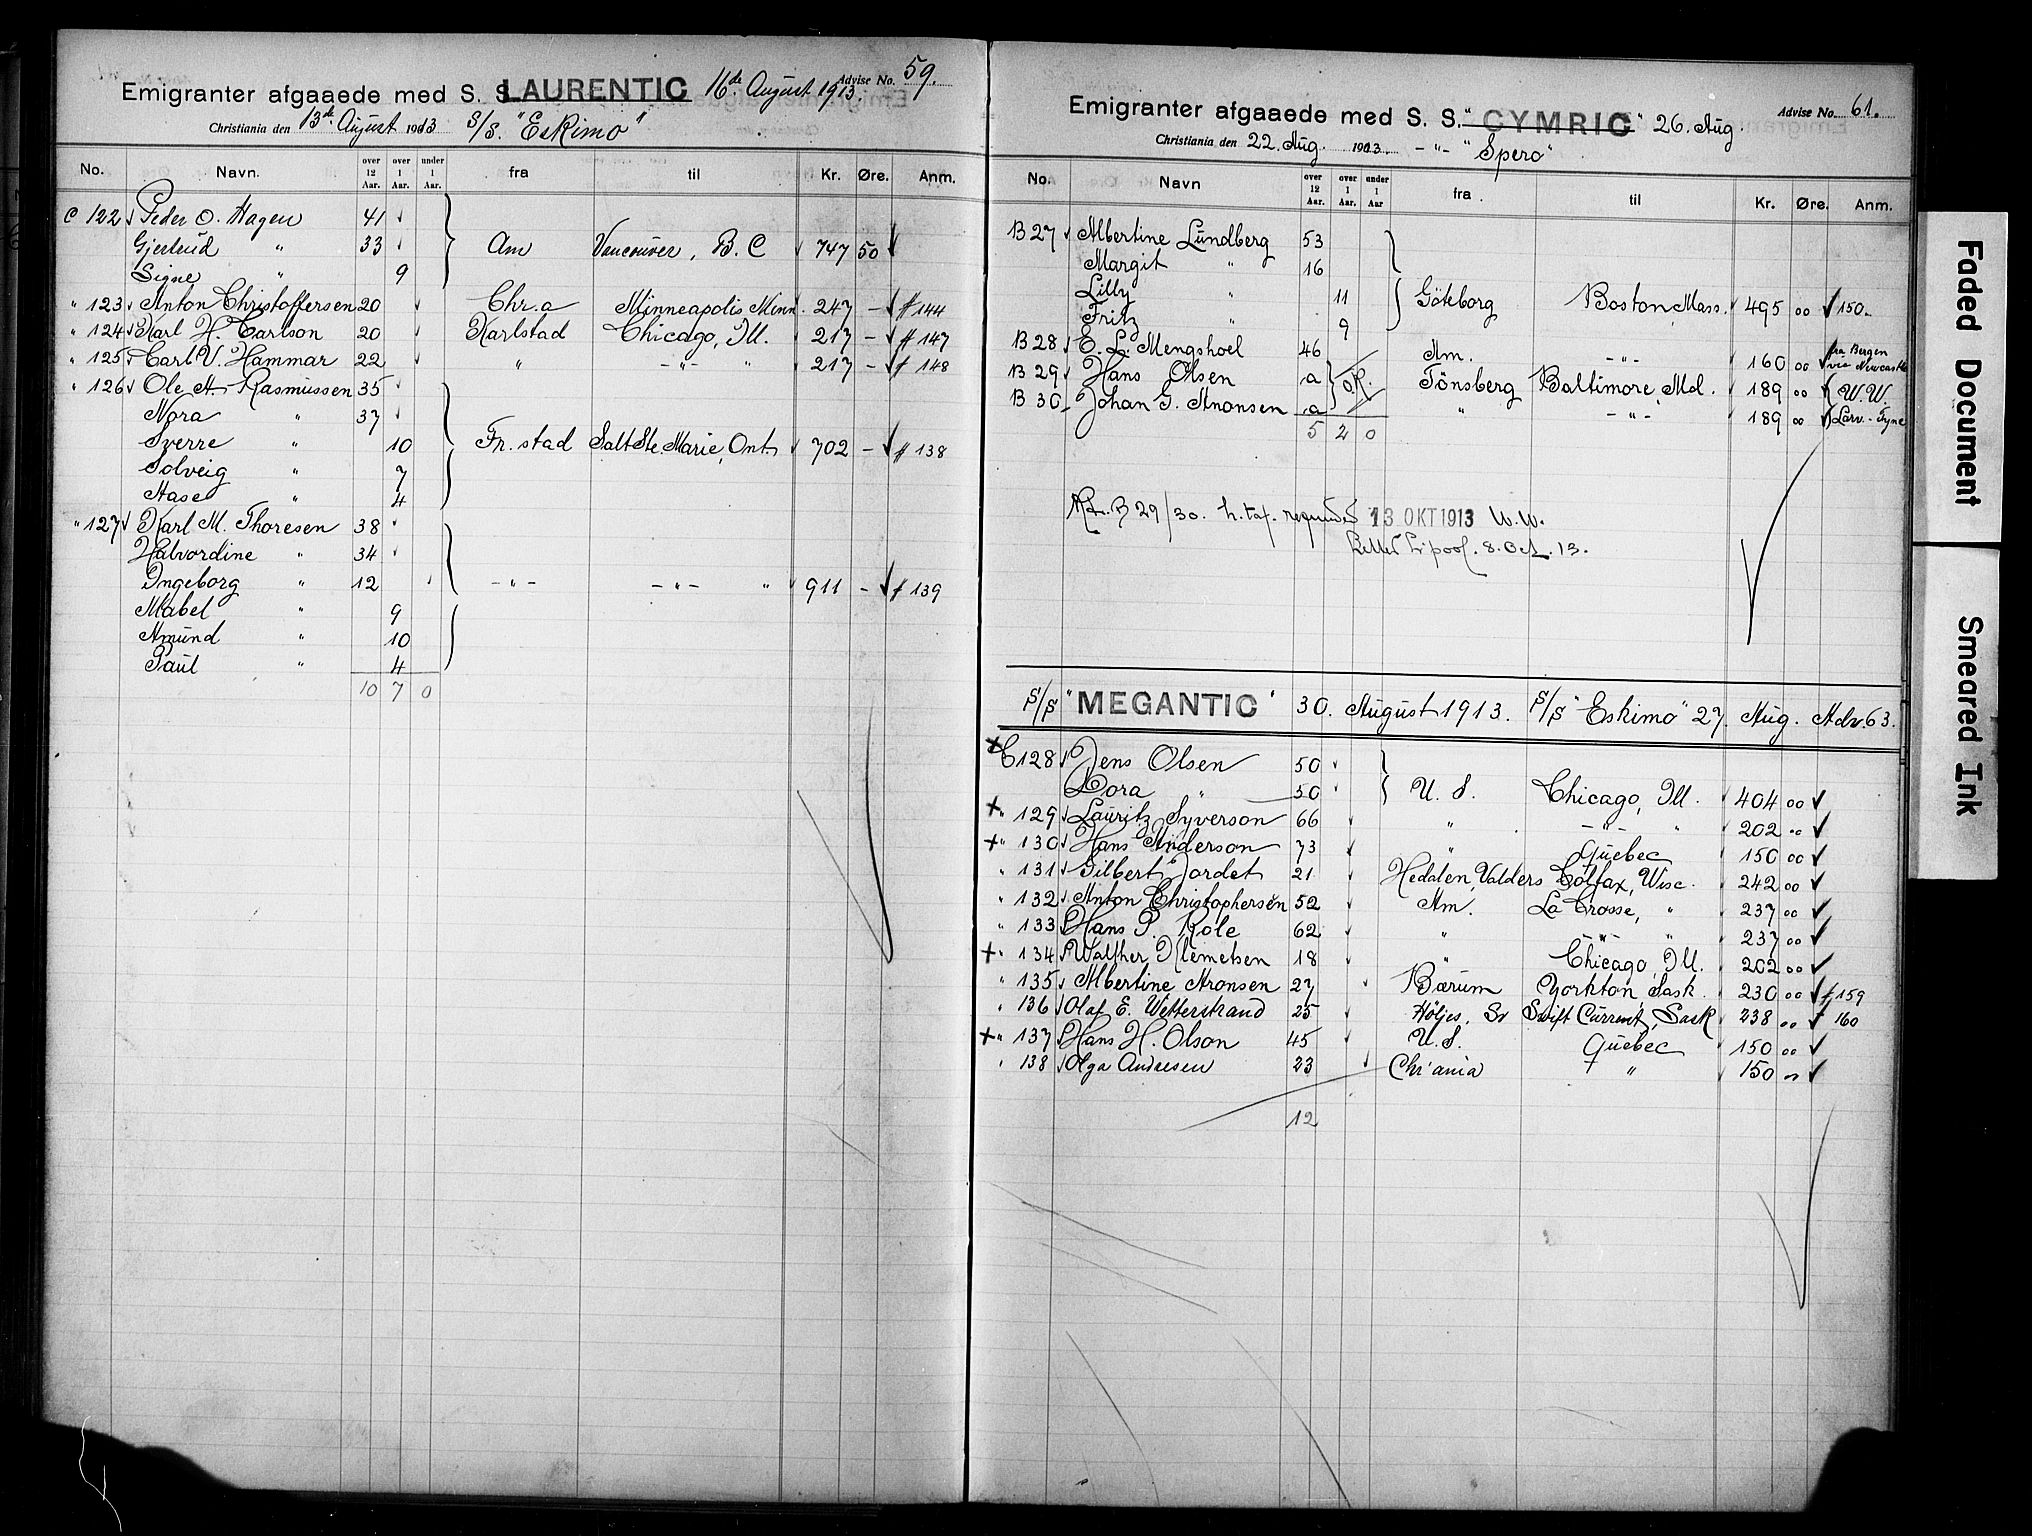 Emigranter afgaaede med S. S. LAURENTIC 16de August 1913. Advise No. 59.
Christiania den 13de August 1913 S/S. "Eskimo"
No. Navn. over 12 Aar. over 1 Aar. under 1 Aar. fra til Kr. Øre. Anm.
C 122 Peder O. Hagen 41
Gjertrud " 33 Am Vancouver, B. C 747 50
Signe " 9
" 123 Anton Christoffersen 20 Chr.a Minneapolis Minn. 247 - # 144
" 124 Karl H. Carlson 20 Karlstad Chicago, Ill. 217 - # 147
" 125 Carl V. Hammar 22 " -"- " 217 - # 148
" 126 Ole A. Rasmussen 35
Nora " 37
Sverre " 10 Fr.stad Salt Ste. Marie, Ont. 702 - # 138
Solveig " 7
Aase " 4
" 127 Karl M. Thoresen 38
Halvordine " 34
Ingeborg " 12 -"- -"- " 911 - # 139
Mabel " 9
Amund " 10
Paul " 4
10 7 0
Emigranter afgaaede med S. S. "CYMRIC" 26. Aug. Advise No. 61.
Christiania den 22. Aug. 1913. -"- "Spero"
No. Navn over 12 Aar. over 1 Aar. under 1 Aar fra til Kr. Øre. Anm.
B 27 Albertine Lundberg 53
Margit " 16
Lilly " 11 Göteborg Boston Mass. 495 00 150.
Fritz " 9
B 28 E. L. Mengshoel 46 Am. -"- 160 00 fra Bergen via Newcastle
B 29 Hans Olsen a Tönsberg Baltimore, Md. 189 00 W.W.
B 30 Johan G. Aronsen a " -"- 189 00 Larv.-Tyne
5 2 0
B 29/30. h.tax. 13 OKT 1913 W.W.
Letter L'pool. 8. Oct. 13.
S/S "MEGANTIC" 30. August 1913. S/S "Eskimo" 27. Aug. Adv. 63.
C 128 Jens Olsen 50
Dora " 50 U. S. Chicago, Ill. 404 00
" 129 Lauritz Syverson 66 " -"- " 202 00
" 130 Hans Anderson 73 " Quebec 150 00
" 131 Gilbert Jordet 21 Hedalen, Valders Colfax, Wisc. 242 00
" 132 Anton Christophersen 52 Am. La Crosse, " 237 00
" 133 Hans P. Role 62 " -"- " 237 00
" 134 Walther Klemetsen 18 " Chicago, Ill. 202 00
" 135 Albertine Aronsen 27 Bærum Yorkton, Sask. 230 00 # 159
" 136 Olaf E. Wetterstrand 25 Höljes, Sv Swift Current, Sask 238 00 # 160
" 137 Hans H. Olson 45 U.S. Quebec 150 00
" 138 Olga Andresen 23 Chr'ania " 150 00
12
Faded Document
Smeared Ink